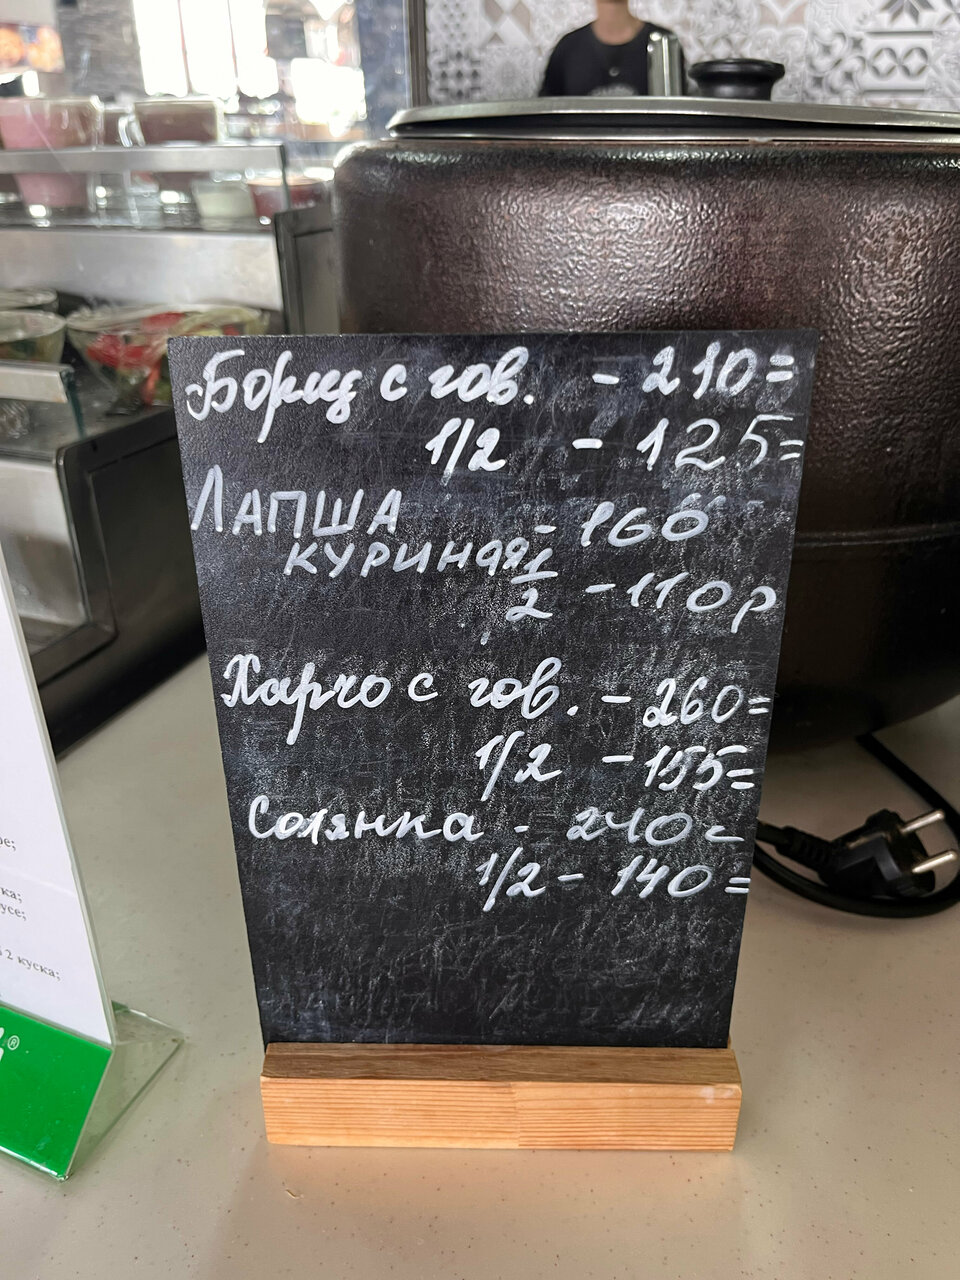 Борщ с гов. - 210=
1/2 - 125=
ЛАПША - 160
КУРИНАЯ
1/2 - 110р
Харчо с гов. - 260=
1/2 - 155=
Солянка - 240=
1/2 - 140=
2 куска;
®